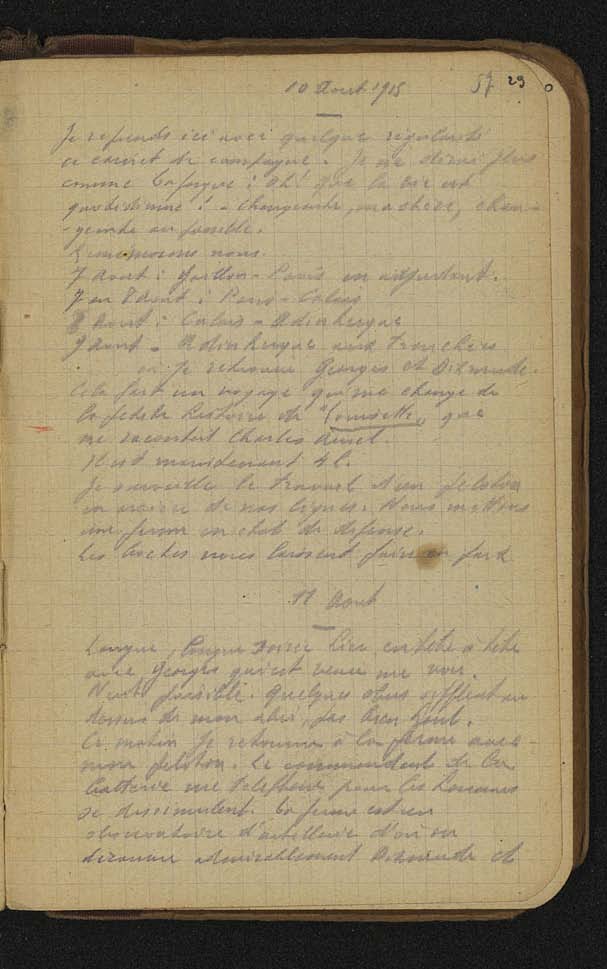 10 Aout 1915
57 29
Je reprends ici avec quelque régularité
ce carnet de campagne. Je ne dirai plus
comme Laforgue : Oh! que la vie est
quotidienne ! - Changeante, ma chère, chan-
-geante au possible.
Remémorons nous.
7 Aout : - Paris en
7 au 8 Aout : Paris - Calais
8 Aout : Calais - Adinkerque
9 Aout - Adinkerque aux tranchées
où je retrouve Georges et Dixmude.
Cela fait un voyage qui me change de
la histoire de "Louisette" que
me racontait Charles
Il est maintenant 4 h.
Je surveille le travail d'un peloton
en arrière de nos lignes. Nous mettons
une ferme en état de défense.
Les boches nous laissent faire en paix
11 Aout
Longue, longue soirée hier en tête à tête
avec Georges qui est venu me voir.
Nuit paisible. Quelques obus sifflent au
dessus de mon abri, pas bien haut.
Ce matin je retourne à la ferme avec
mon peloton. Le commandant de la
batterie me téléphone pour que les hommes
se dissimulent. La ferme est un
observatoire d'artillerie d'où on
découvre admirablement Dixmude et